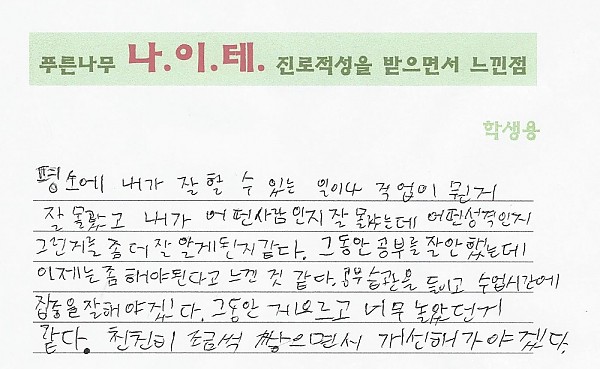 푸른나무 나.이.테. 진로적성을 받으면서 느낀점
학생용
평소에 내가 잘할 수 있는 일이나 직업이 뭔지
잘 몰랐고 내가 어떤사람인지 잘 몰랐는데 어떤성격인지
그런거를 좀 더 잘 알게된거같다. 그동안 공부를 잘안했는데
이제는 좀 해야된다고 느낀 것 같다. 공부습관을 들이고 수업시간에
집중을 잘해야겠다. 그동안 게으르고 너무 놀았던게
같다. 천천히 조금씩 쌓으면서 개선해가야겠다.